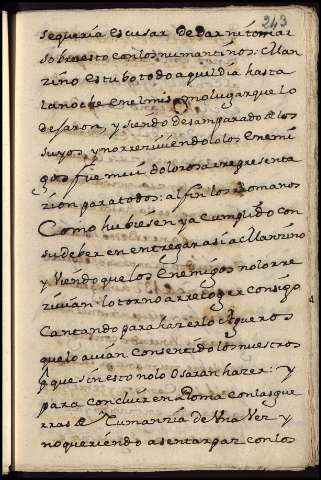 243
sequeria escusar de dar ni tomar
sobra esto con los numantinos: Man
zino estubo todo aquel dia hasta
la noche en el mismo lugar que lo
dejaron, y siendo desamparado de los
suyos, y no rreziviendolo los Enemi
gos fue mui dolorosa rrepresenta
zion para todos: al fin los Romanos
Como hubiesen ya cumplido con
su deber en entregar asi a Manzino
y Viendo que los Enemigos no lo rre
zivian lo torno a rrecoger consigo
Cantando para hazerlo Agueros
que lo avian consentido los nuestros
q̃ que sin esto no lo osaran hazer: y
para concluir en Roma con las gue
rras de Numanzia de Una Vez y
no queriendo asentar paz con los